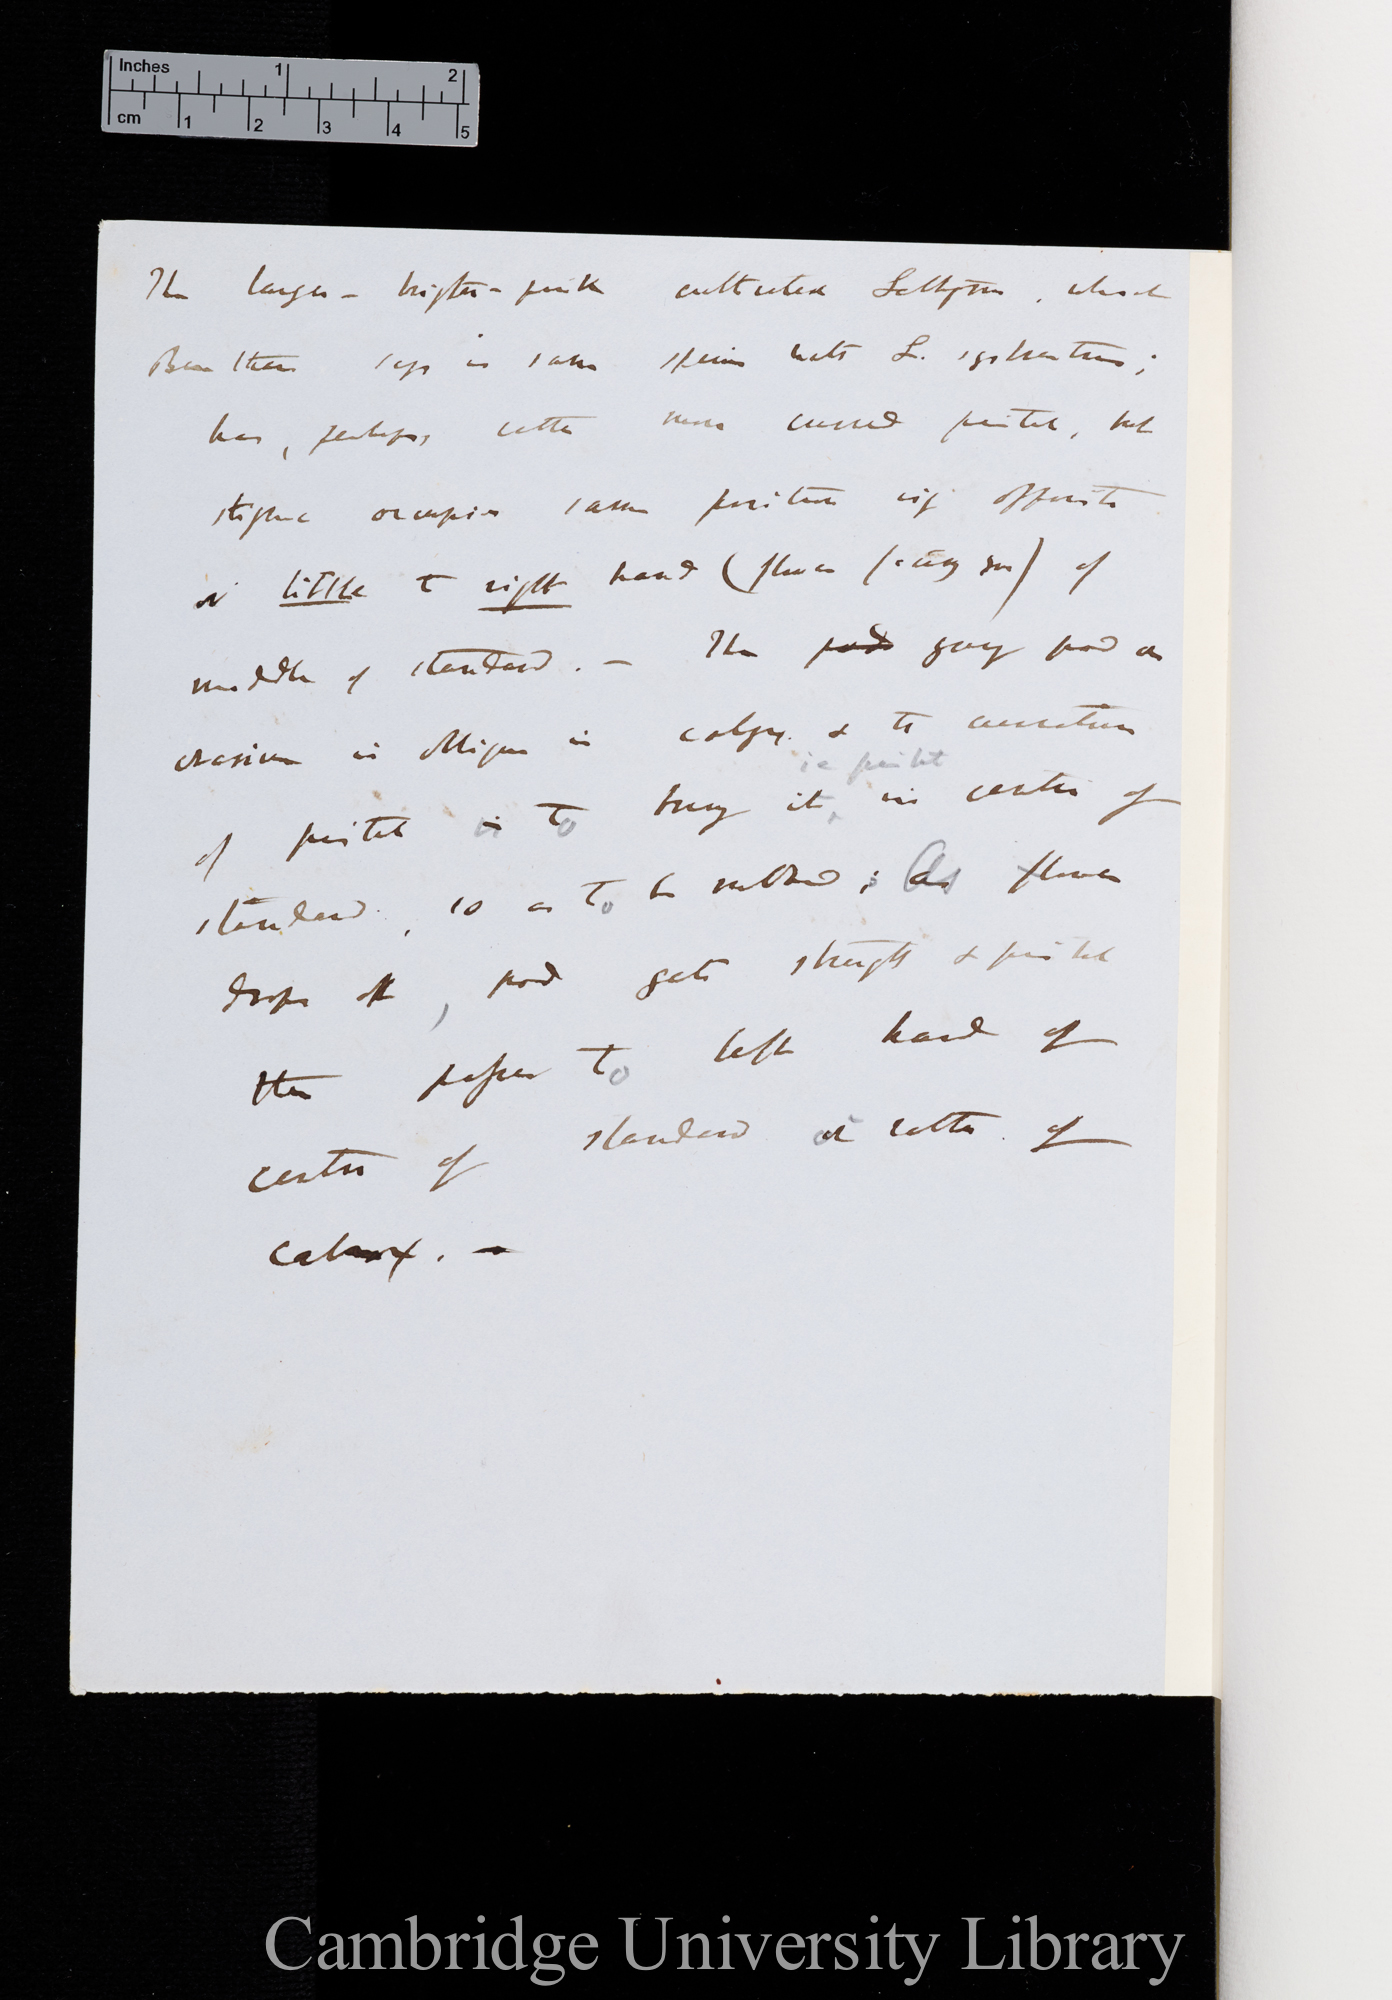 Inches 1 2
cm 1 2 3 4 5
The larger- brighter-pink cultivated Lathyrus, which
Bentham says is same species with L. sylvestris;
has, perhaps, rather more curved pistil, but
stigma occupies same position viz opposite
or little to right hand (flower facing you) of
middle of standard. — The pod young pod or
ovarium is oblique in calyx & the curvature
ie pistil
of pistil is to bring it, in centre of
standard, so as to be rubbed; As flower
drops off, pod gets straight & pistil
then passes to left hand of
centre of standard or rather of
calyx. —
Cambridge University Library